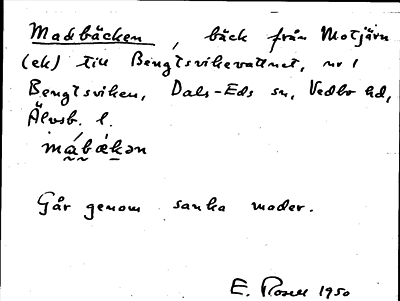 Madbäcken, bäck från Motjärn
(ek) till Bengtsvikevattnet, nr 1
Bengtsviken, Dals-Eds sn, Vedbo hd,
Älvsb. l.
Går genom sanka mader.
E. Rosell 1950